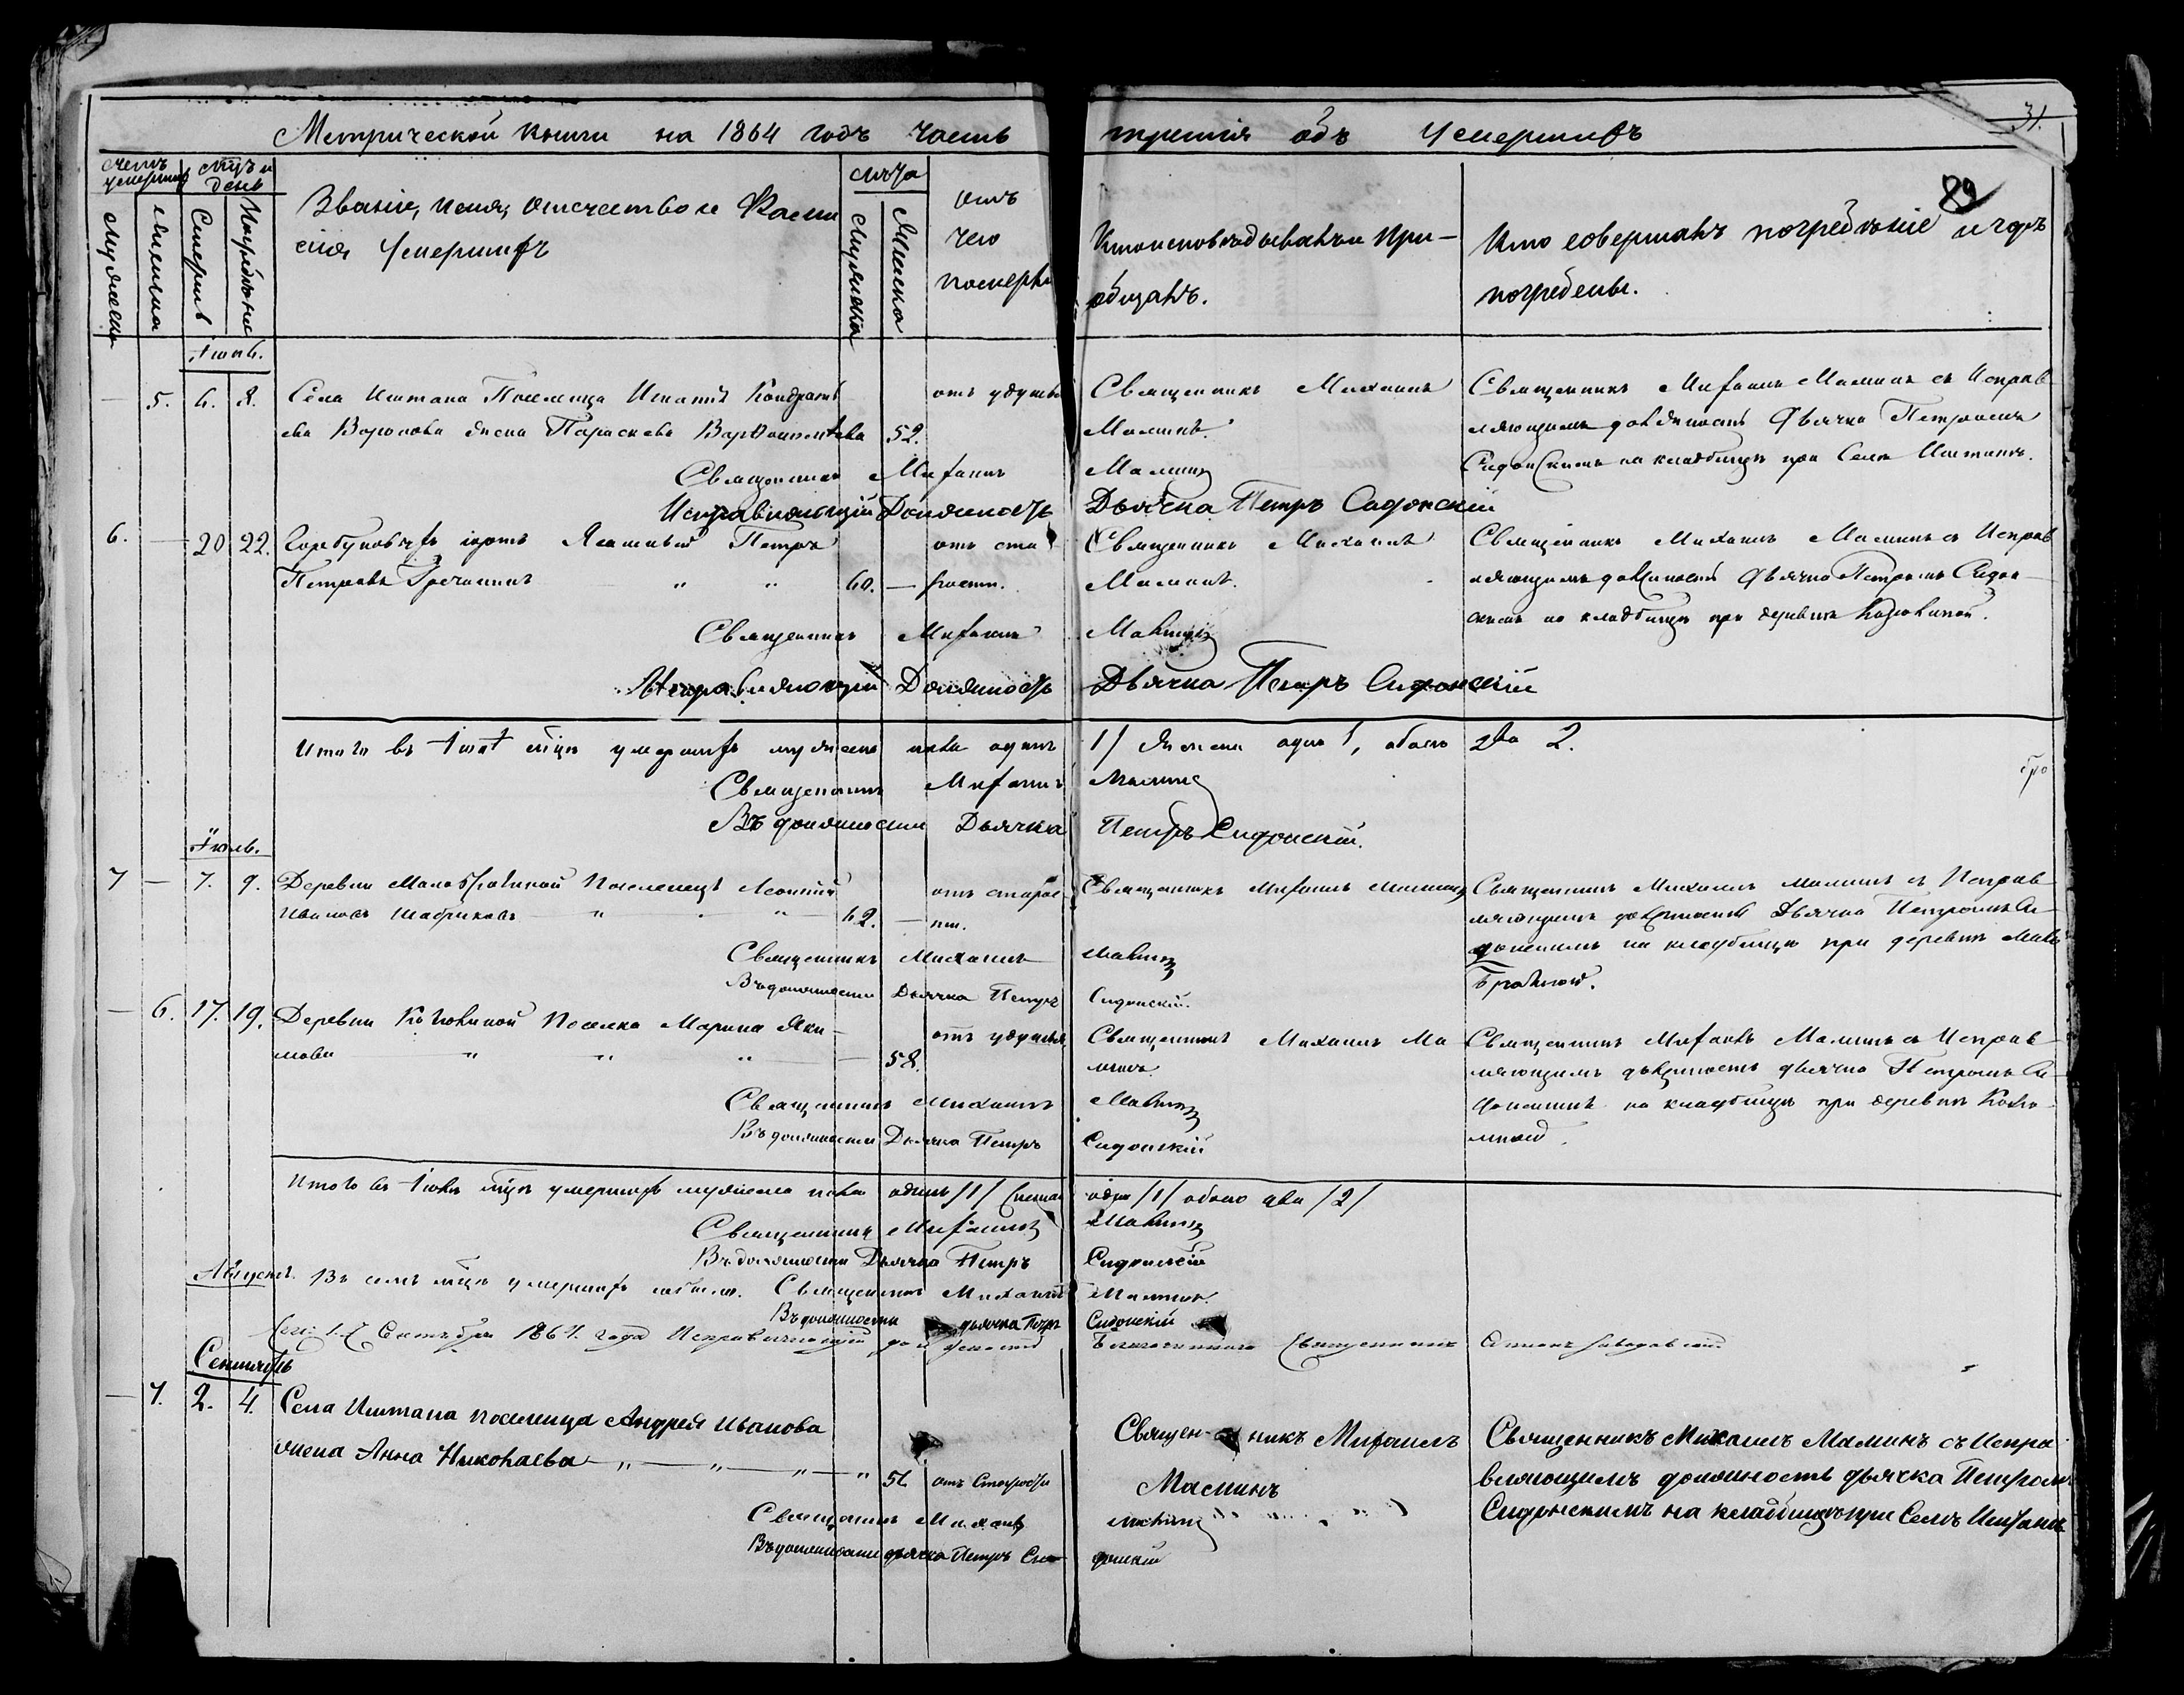 31.
Метрической книги на 1864 годъ часть третія объ Умершихъ
89
Счетъ умершихъ
Мужеска
Женска
Мѣсяцъ и день
Смерти
Погребенія
Званіе, имя, отчество и Фами
лія Умершихъ
Лѣта
Мужеска
Женска
Отъ
чего
померъ
Кто исповѣдывалъ и прі-
общалъ.
Кто совершалъ погребеніе и гдѣ
погребены.
Іюнь.
— 5. 6. 8. Села Иштана Поселенца Игнатія Кондрать
ева Воронова жена Параскева Варѳоломѣева 52.
отъ удушья
Священникъ Михаилъ
Малинъ.
Священникъ Михаилъ Малинъ съ Исправ
ляющимъ должность Дьячка Петромъ
Сидонскимъ на кладбищѣ при Селѣ Иштанѣ.
Священникъ Михаилъ Малинъ
Исправляющій Должность Дьячка Петръ Сидонскій
6. — 20 22. юртъ Ясашный Петръ
Петровъ " " 60. —
отъ ста
рости.
Священникъ Михаилъ
Малинъ.
Священникъ Михаилъ Малинъ съ Исправ
ляющимъ должность Дьячка Петромъ Сидон-
скимъ на кладбищѣ при деревнѣ
Священникъ Михаилъ Малинъ
Исправляющій Должность Дьячка Петръ Сидонскій
Итого въ Іюнѣ мѣсяцѣ умершихъ мужеска пола одинъ 1/ Женска одна 1, обоего два 2.
Священникъ Михаилъ Малинъ
Въ должности Дьячка Петръ Сидонскій.
Іюль.
7 — 7. 9. Деревни Поселенецъ Леонтій
Ивановъ " " 62. —
отъ старос
ти.
Священникъ Михаилъ Малинъ
Священникъ Михаилъ Малинъ съ Исправ
ляющимъ должность Дьячка Петромъ Си-
донскимъ на кладбищѣ при деревнѣ
Священникъ Михаилъ Малинъ
Въ должности Дьячка Петръ Сидонскій.
— 6. 17. 19. Деревни Поселка Марина Яки-
мова " " " — 58.
отъ удушья
Священникъ Михаилъ Ма
линъ.
Священникъ Михаилъ Малинъ съ Исправ
ляющимъ должность дьячка Петромъ Си
донскимъ на кладбищѣ при деревнѣ
Священникъ Михаилъ Малинъ
Въ должности Дьячка Петръ Сидонскій
Итого въ Іюлѣ мѣсяцѣ умершихъ мужеска пола одинъ /1/ женска одна /1/ обоего два /2/
Священникъ Михаилъ Малинъ
Въ должности Дьячка Петръ Сидонскій
Августъ. Въ семъ мѣсяцѣ умершихъ небыло. Священникъ Михаилъ Малинъ.
Въ должности дьячка Петръ Сидонскій
Сентября 1864. года Исправляющій должность Благочиннаго Священникъ
Сентябрь
— 7. 2. 4. Села Иштана поселенца Андрея Иванова
жена Анна Николаева — " — " — " — "
отъ Старости
Священникъ Михаилъ
Малинъ
Священникъ Михаилъ Малинъ съ Испра
вляющимъ должность дьячка Петромъ
Сидонскимъ на кладбищѣ при Селѣ Иштанѣ
Священникъ Михаилъ Малинъ
Въ должности дьячка Петръ Си-
донскій